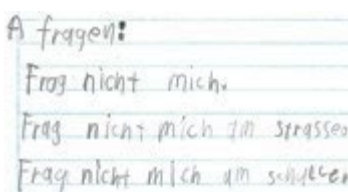 A fragen:
Frog nicht mich.
Frag nicht mich im strassen
Frag nicht mich am